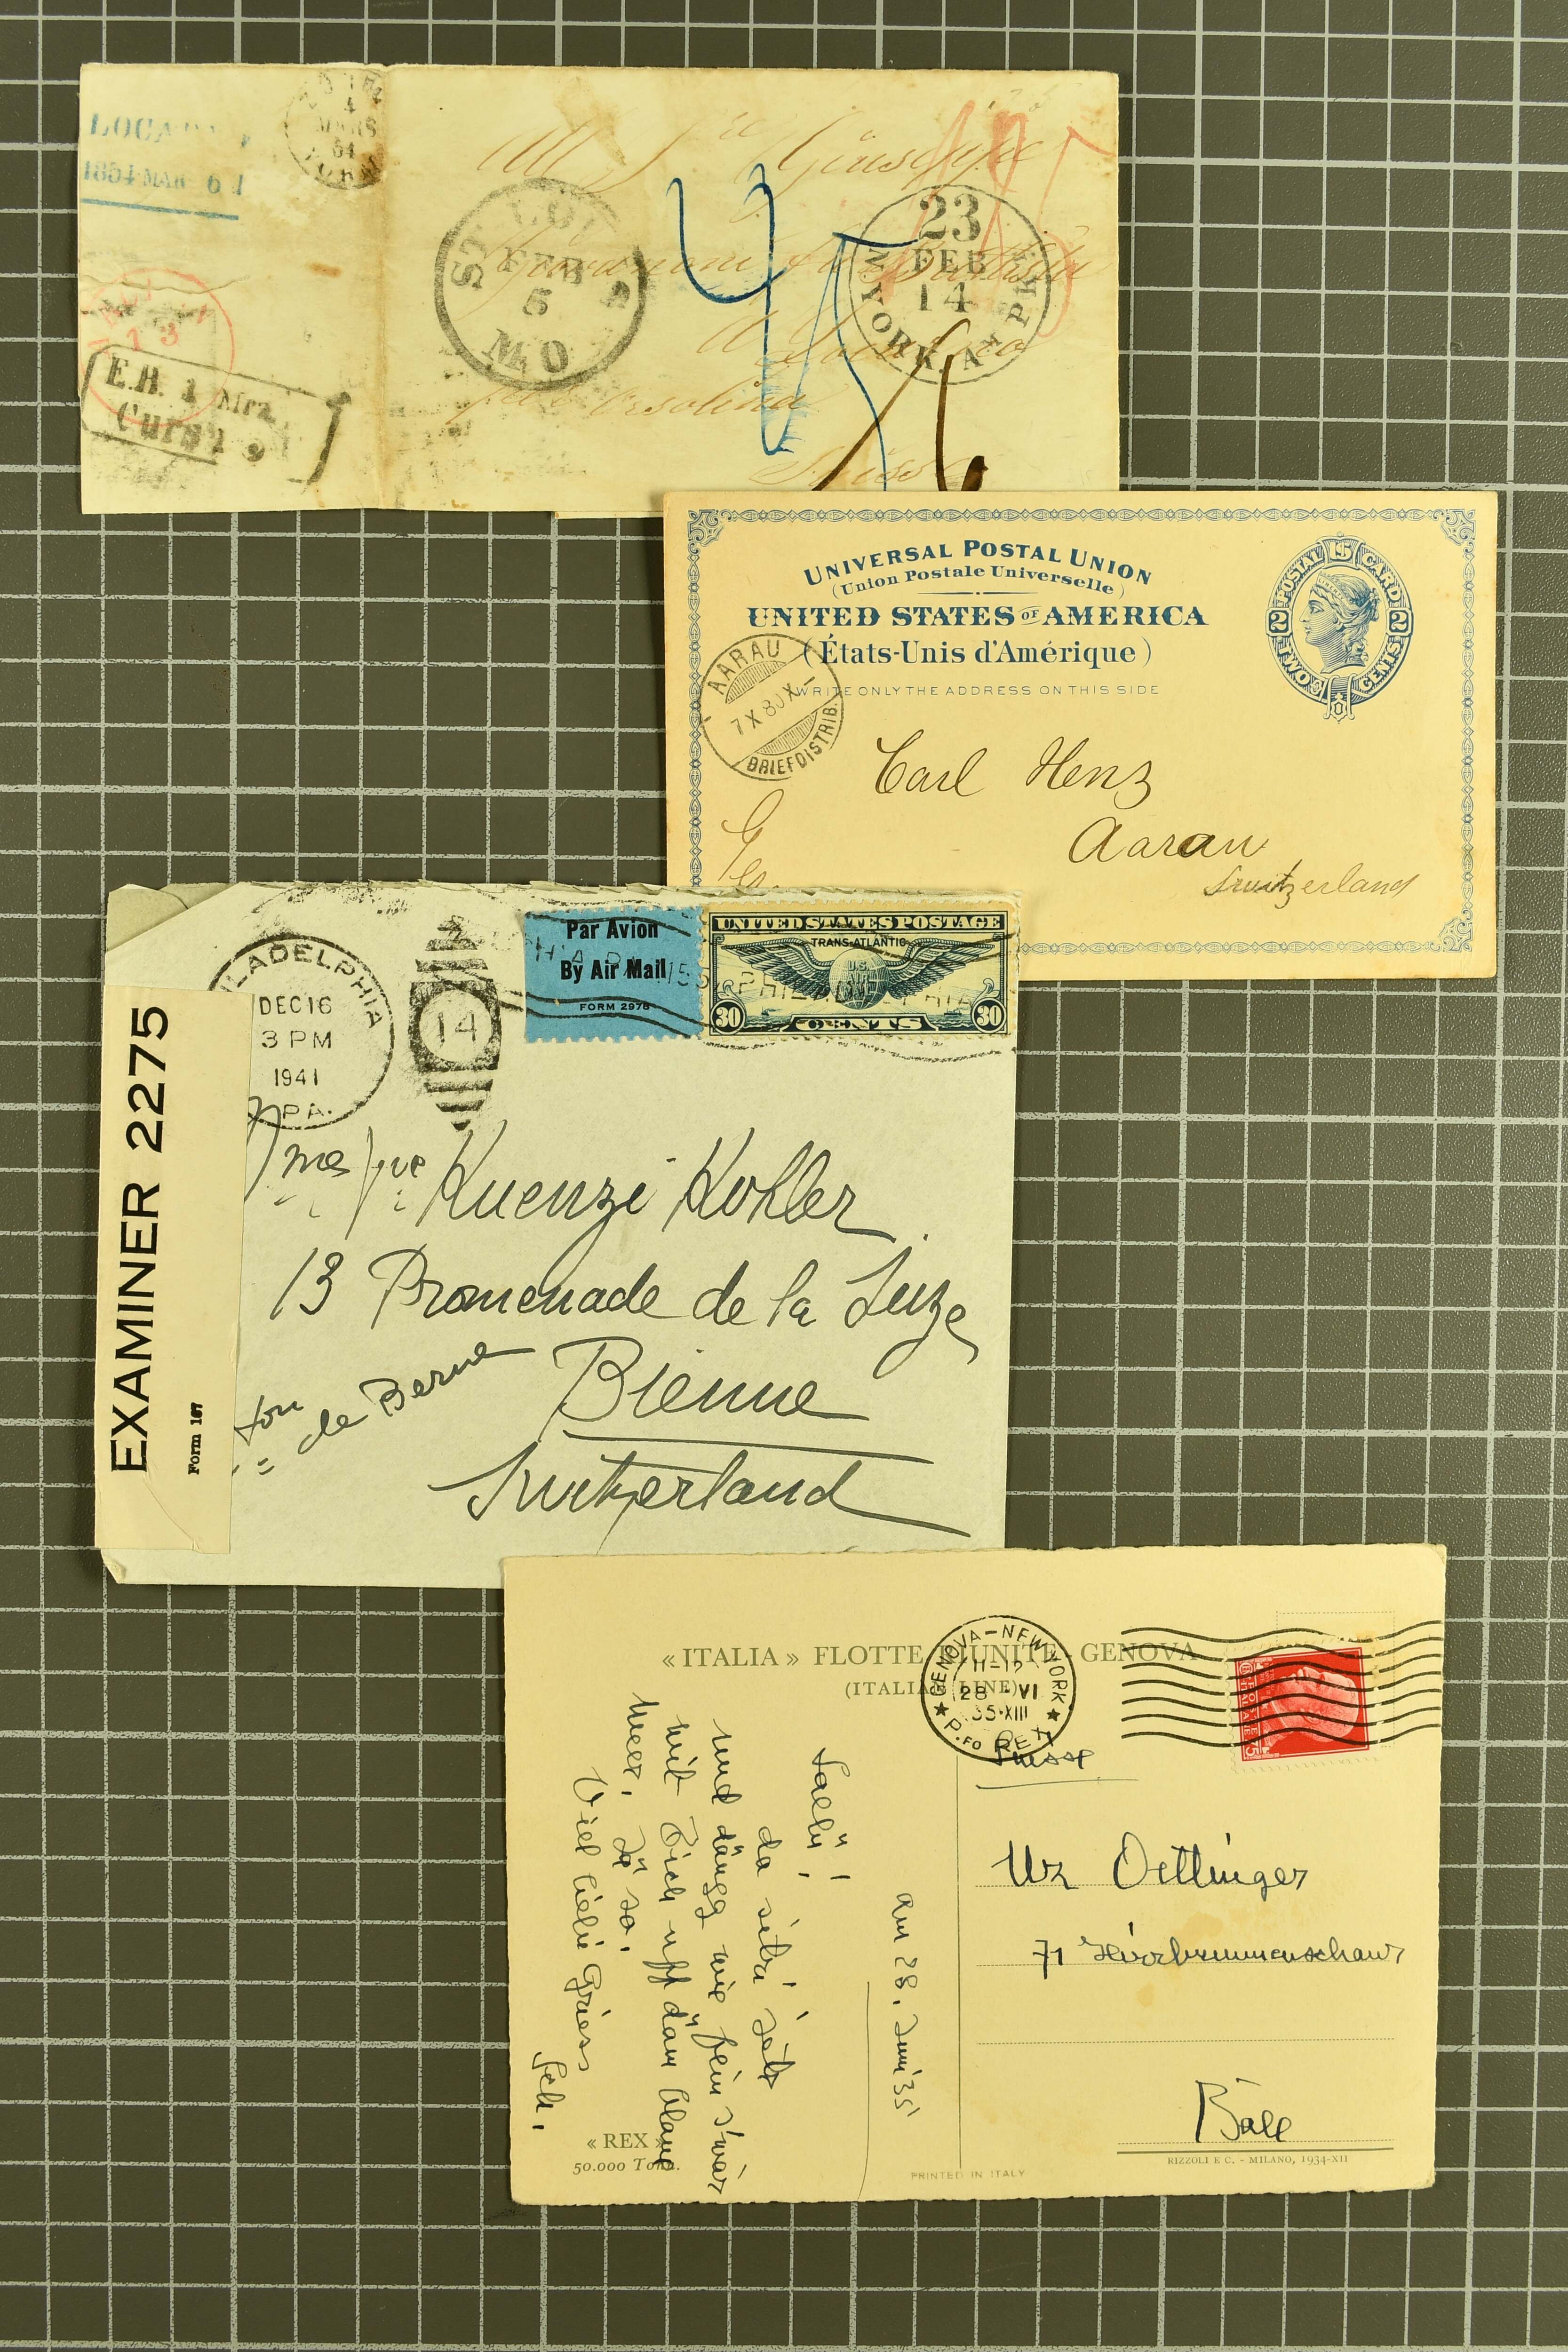 LOCA
1854 MAR 6
4
MARS
54
E.B. 1 Mrz.
Curs 2
ST. LOUIS
FEB
5
MO
23
FEB
14
N. YORK. AM. PKT.
45
All Sre Giuseppe
Giovanni
A Locarno
per Orsolina
Suisse
UNIVERSAL POSTAL UNION
(Union Postale Universelle)
UNITED STATES OF AMERICA
(États-Unis d'Amérique)
WRITE ONLY THE ADDRESS ON THIS SIDE
U.S. POSTAL CARD
2 2
TWO CENTS
AARAU
7 X 80 X-
BRIEFDISTRIB.
Carl Henz
Aarau
Switzerland
EXAMINER 2275
Form 167
PHILADELPHIA
DEC 16
3 PM
1941
PA.
14
Par Avion
By Air Mail
FORM 2978
UNITED STATES POSTAGE
TRANS-ATLANTIC
U.S.
AIR
MAIL
30 CENTS 30
PHILADELPHIA
Mme Vve Kuenzi Kohler
13 Promenade de la Suze
Bienne
ton de Berne
Switzerland
« ITALIA » FLOTTE RIUNITE - GENOVA
(ITALIAN LINE)
GENOVA-NEW YORK
11-12
28 VI
35·XIII
P.FO REX
Suisse
Uz Oettinger
71 Hirzbrunnenschanz
Bâle
am 28. Juni 35
Sally!
da sitzi jetz
und dängg wie fein s'wär
mit Dich uff däm blaue
Meer. Jä so.
Viel liebi Griess
« REX »
50.000 Tonn.
PRINTED IN ITALY
RIZZOLI E C. - MILANO, 1934-XII